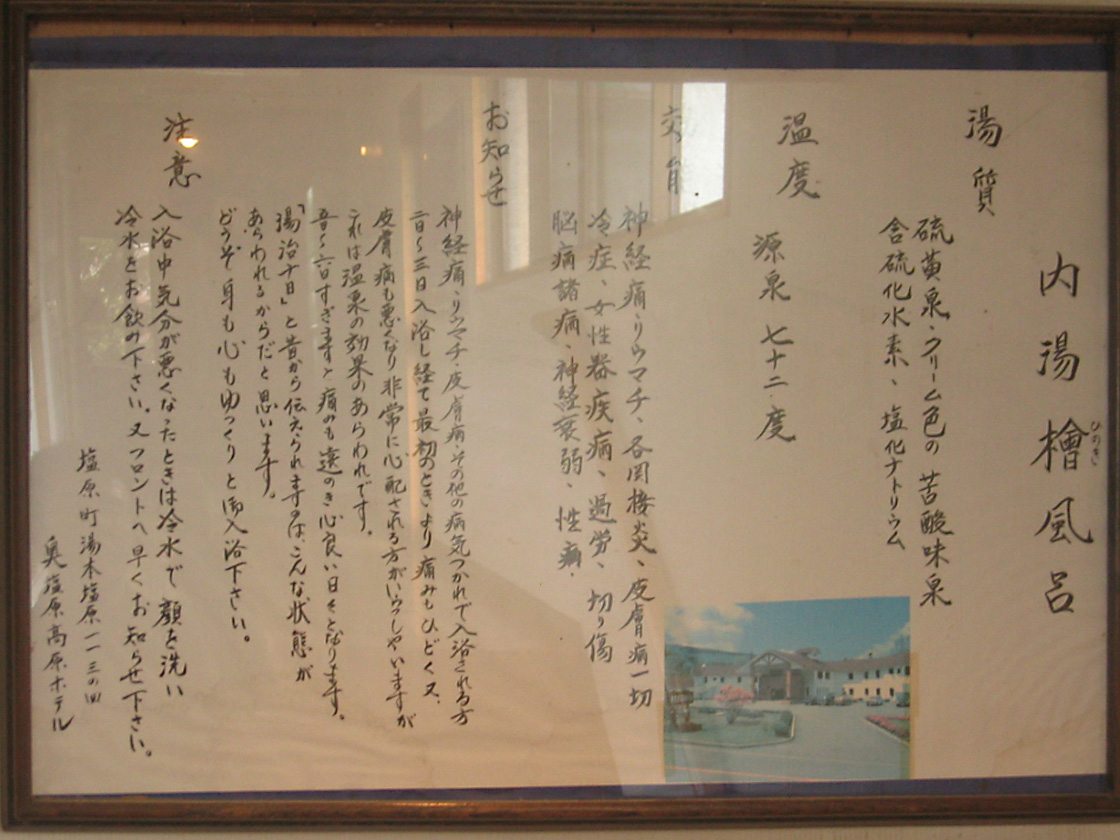 内湯檜風呂
ひのき
湯質
硫黄泉、クリーム色の苦酸味泉
含硫化水素、塩化ナトリウム
温度
源泉 七十二度
神経痛、リウマチ、各関接炎、皮膚病一切
冷症、女性器疾病、過労、切り傷
脳病諸病、神経衰弱、性病、
お知らせ
神経痛、リウマチ、皮膚病、その他の病気つかれで入浴される方
二日〜三日入浴し経て最初のときより痛みもひどく又、
皮膚病も悪くなり非常に心配される方がいらっしやいますが
これは温泉の効果のあらわれです。
五日〜六日すぎますと痛みも遠のき心良い日々となります。
「湯治十日」と昔から伝えられますのは、こんな状態が
あらわれるからだと思います。
どうぞ身も心もゆっくりと御入浴下さい。
注意
入浴中気分が悪くなったときは冷水で顔を洗い
冷水をお飲み下さい。又フロントへ早くお知らせ下さい。
塩原町湯本塩原一一三の四
奥塩原高原ホテル